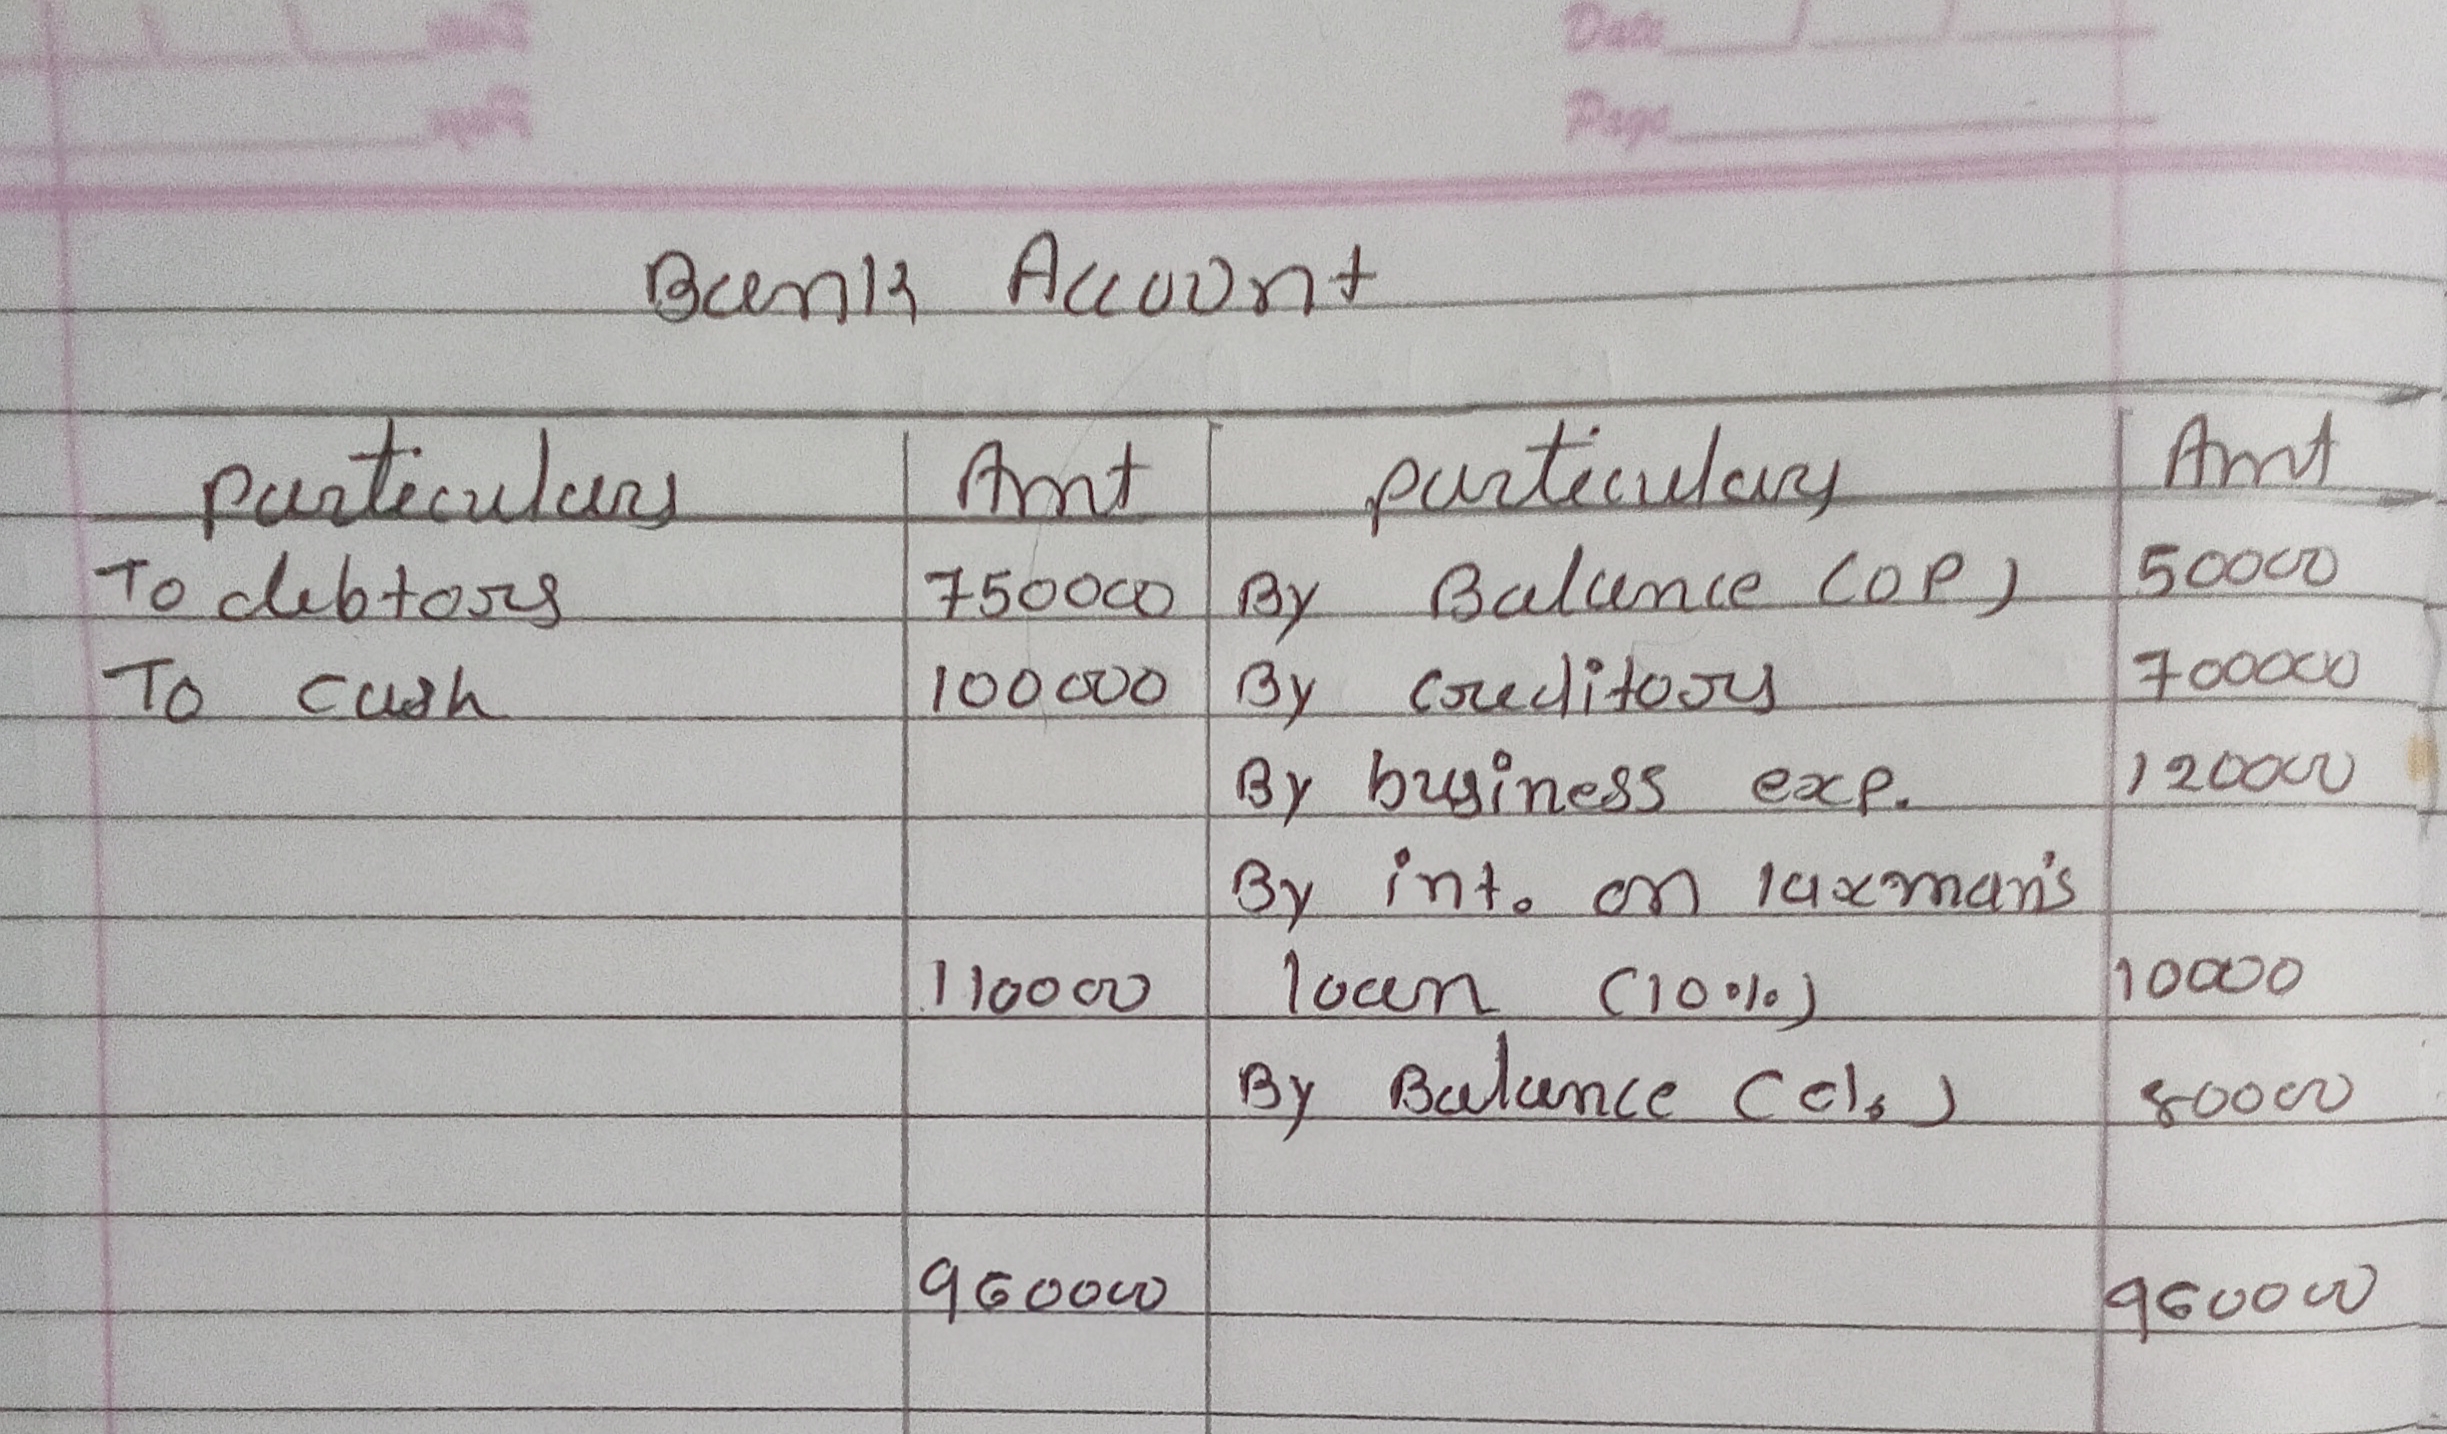 Date
Page
Bank Account
particulars Amt particulars Amt
To debtors 750000 By Balance (op) 50000
To cash 100000 By creditors 700000
By business exp. 120000
By int. on laxman's
110000 loan (10%) 10000
By Balance (cl.) 80000
960000 960000